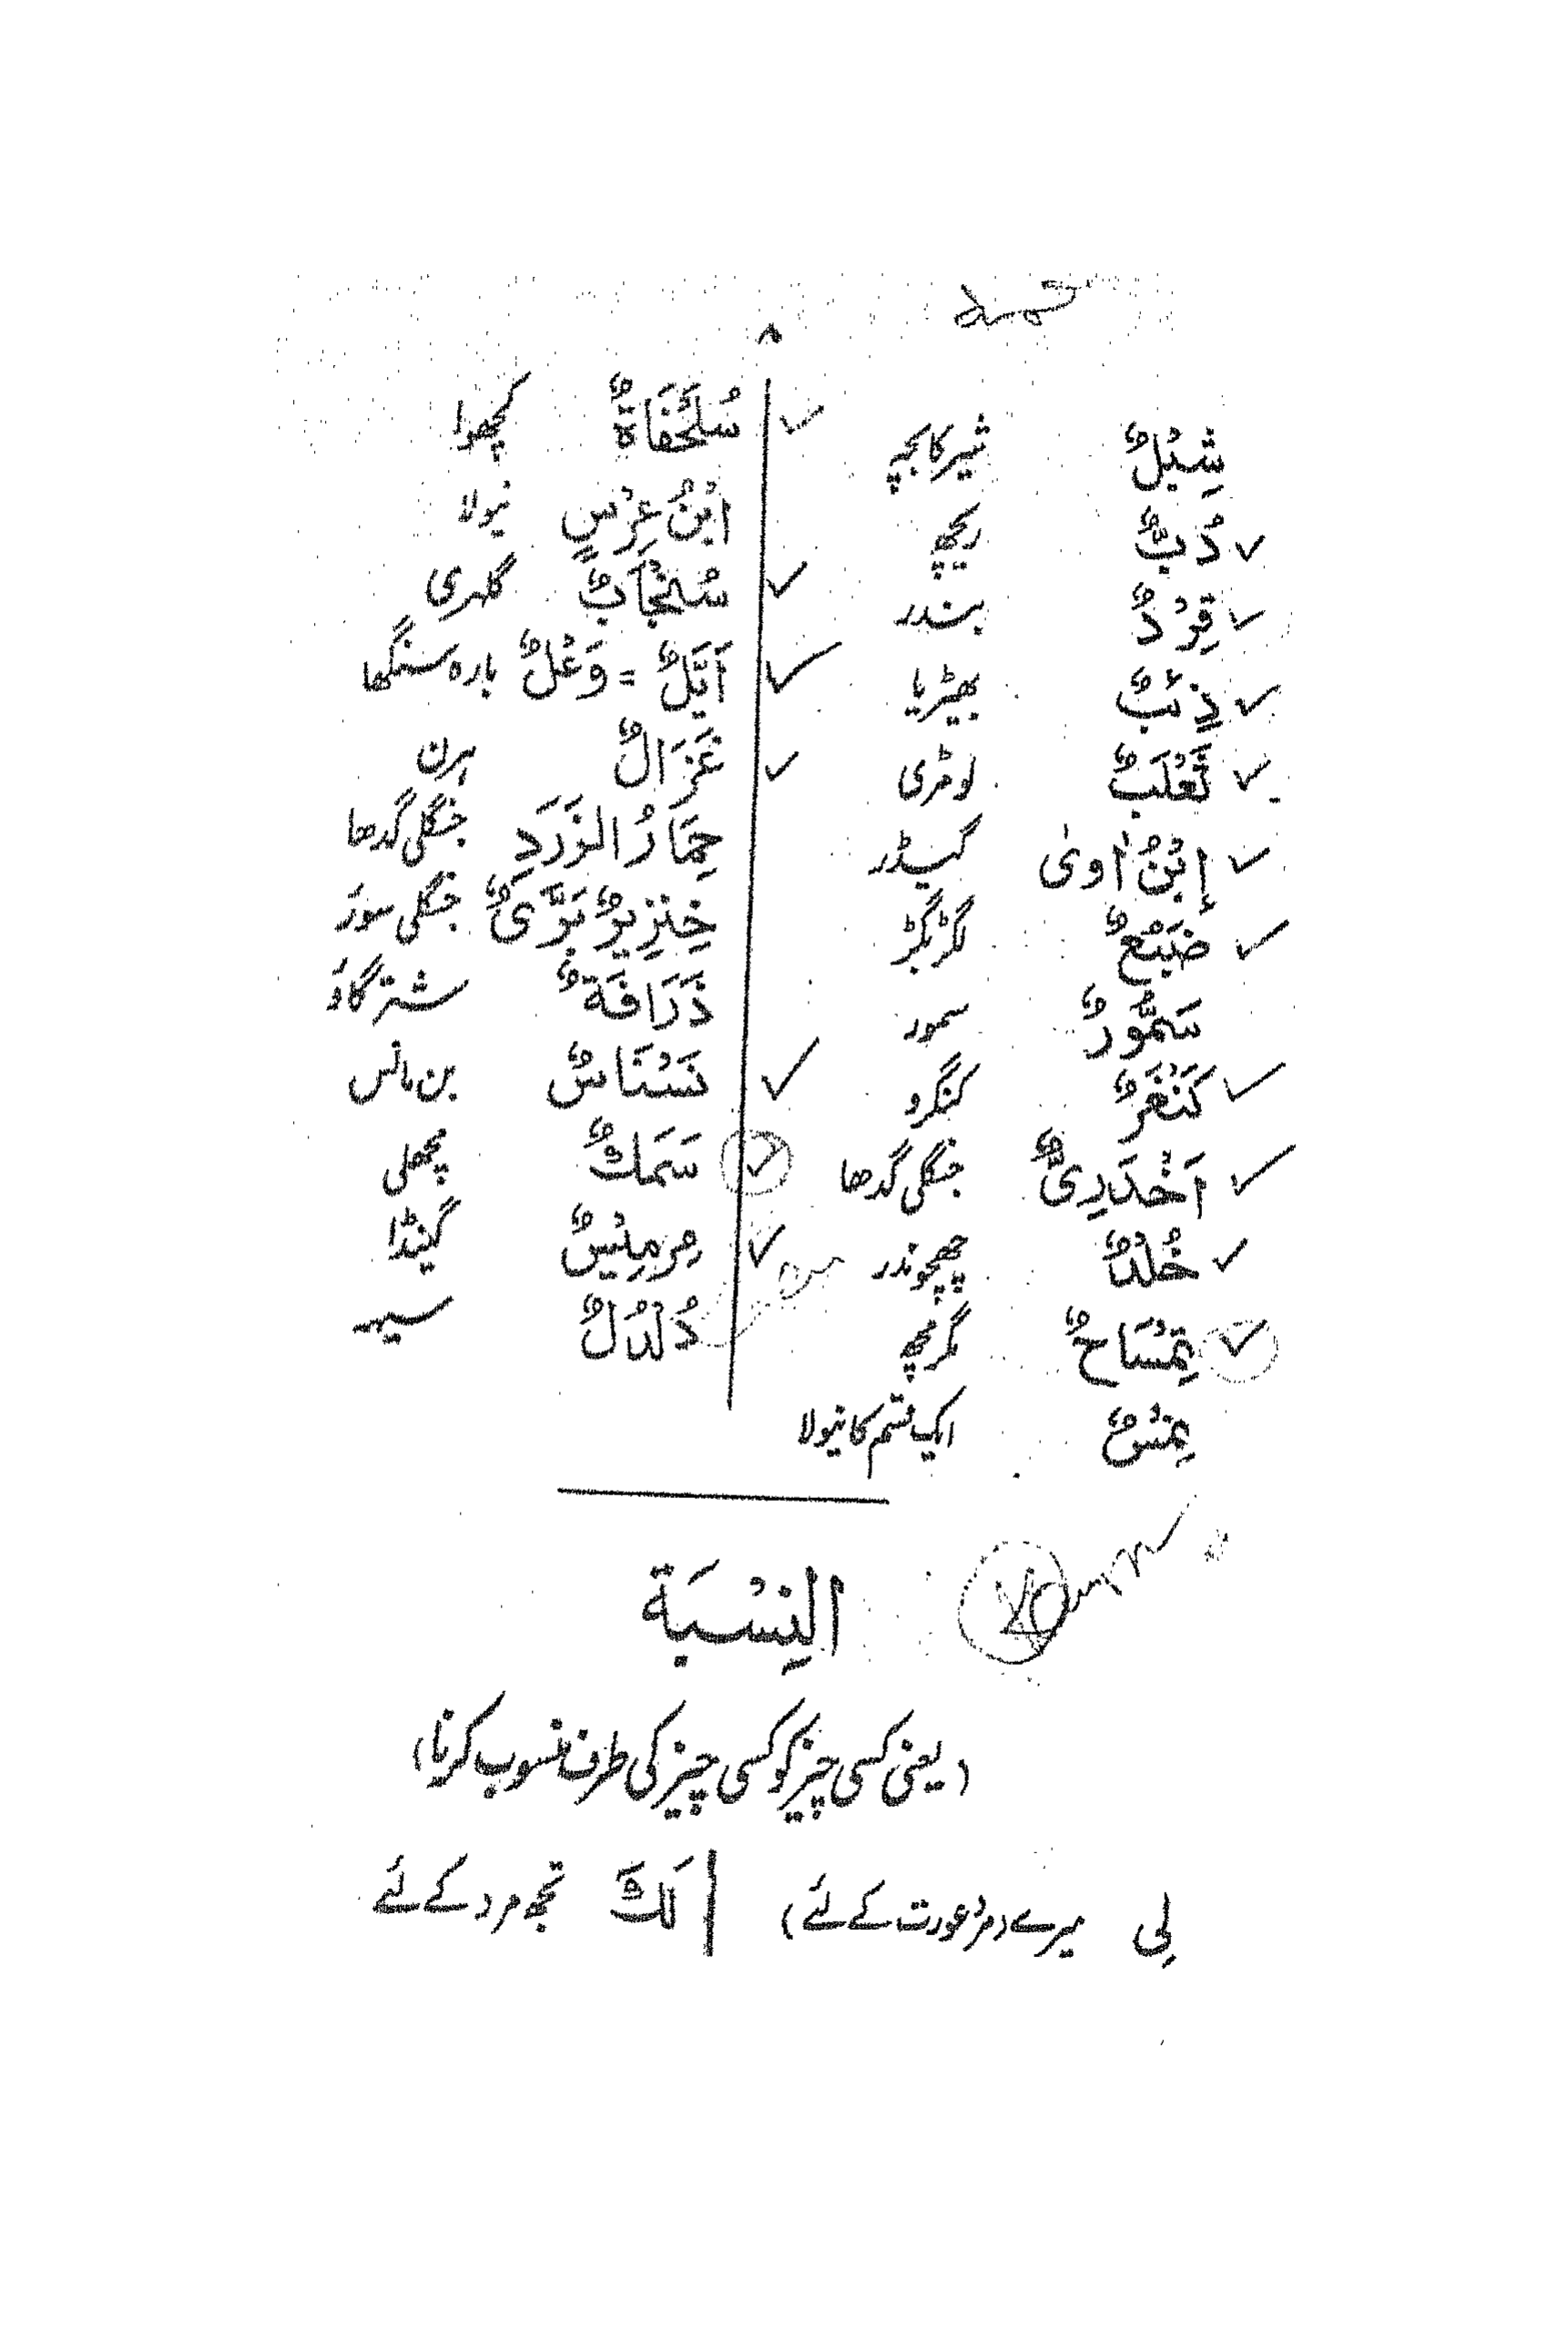 ۸
شِبْلٌ شیر کا بچہ
دُبٌّ ریچھ
قِرْدٌ بندر
ذِئْبٌ بھیڑیا
ثَعْلَبٌ لومڑی
إِبْنُ اٰوىٰ گیدڑ
ضَبْعٌ لگڑبگڑ
سَمُّورٌ سمور
كَنْغَرٌ کنگرو
اَخْدَرِىٌّ جنگلی گدھا
خُلْدٌ چھچھوندر
تِمْسَاحٌ مگرمچھ
نِمْسٌ ایک قسم کا نیولا
سُلَحْفَاةٌ کچھوا
ابْنُ عِرْسٍ نیولا
سُنْجَابٌ گلہری
اَيَّلٌ = وَعْلٌ بارہ سنگھا
غَزَالٌ ہرن
حِمَارُ الزَرَدِ جنگلی گدھا
خِنْزِيرٌ بَرِّىٌّ جنگلی سور
زَرَافَةٌ شتر گاؤ
نَسْنَاسٌ بن مانس
سَمَكٌ مچھلی
مِرْمِيْسٌ گینڈا
دُلْدُلٌ سیہہ
النِسْبَة
(یعنی کسی چیز کو کسی چیز کی طرف منسوب کرنا)
لِى میرے (مرد عورت کے لئے)
لَكَ تجھ مرد کے لئے